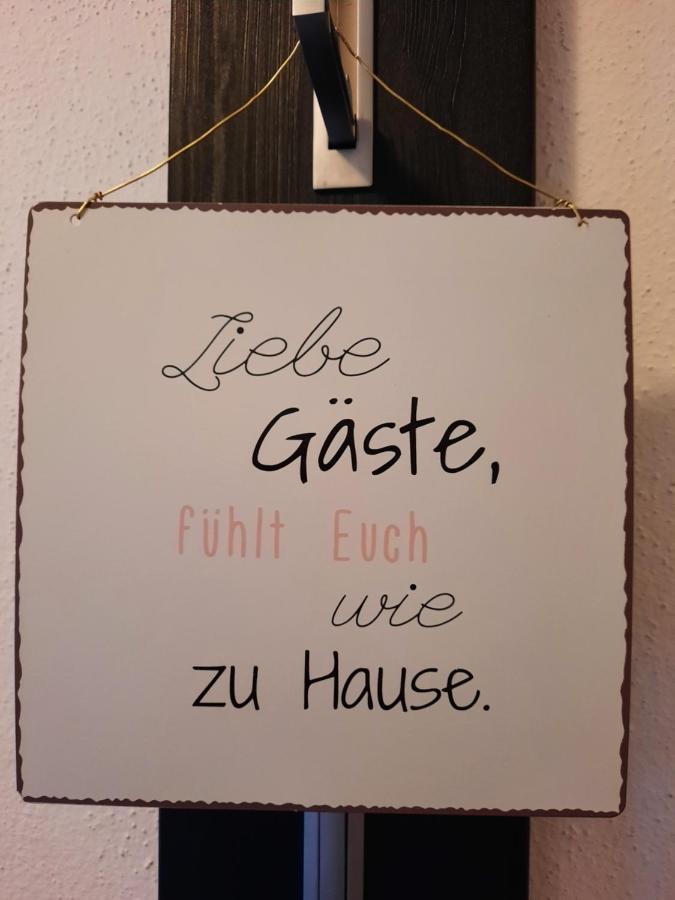 Liebe
Gäste,
fühlt Euch
wie
zu Hause.